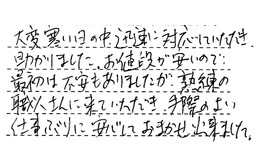 大変寒い日の中、迅速に対応していただき
助かりました。お値段が安いので
最初は不安もありましたが、熟練の
職人さんに来ていただき、手際のよい
仕事ぶりに安心しておまかせ出来ました。